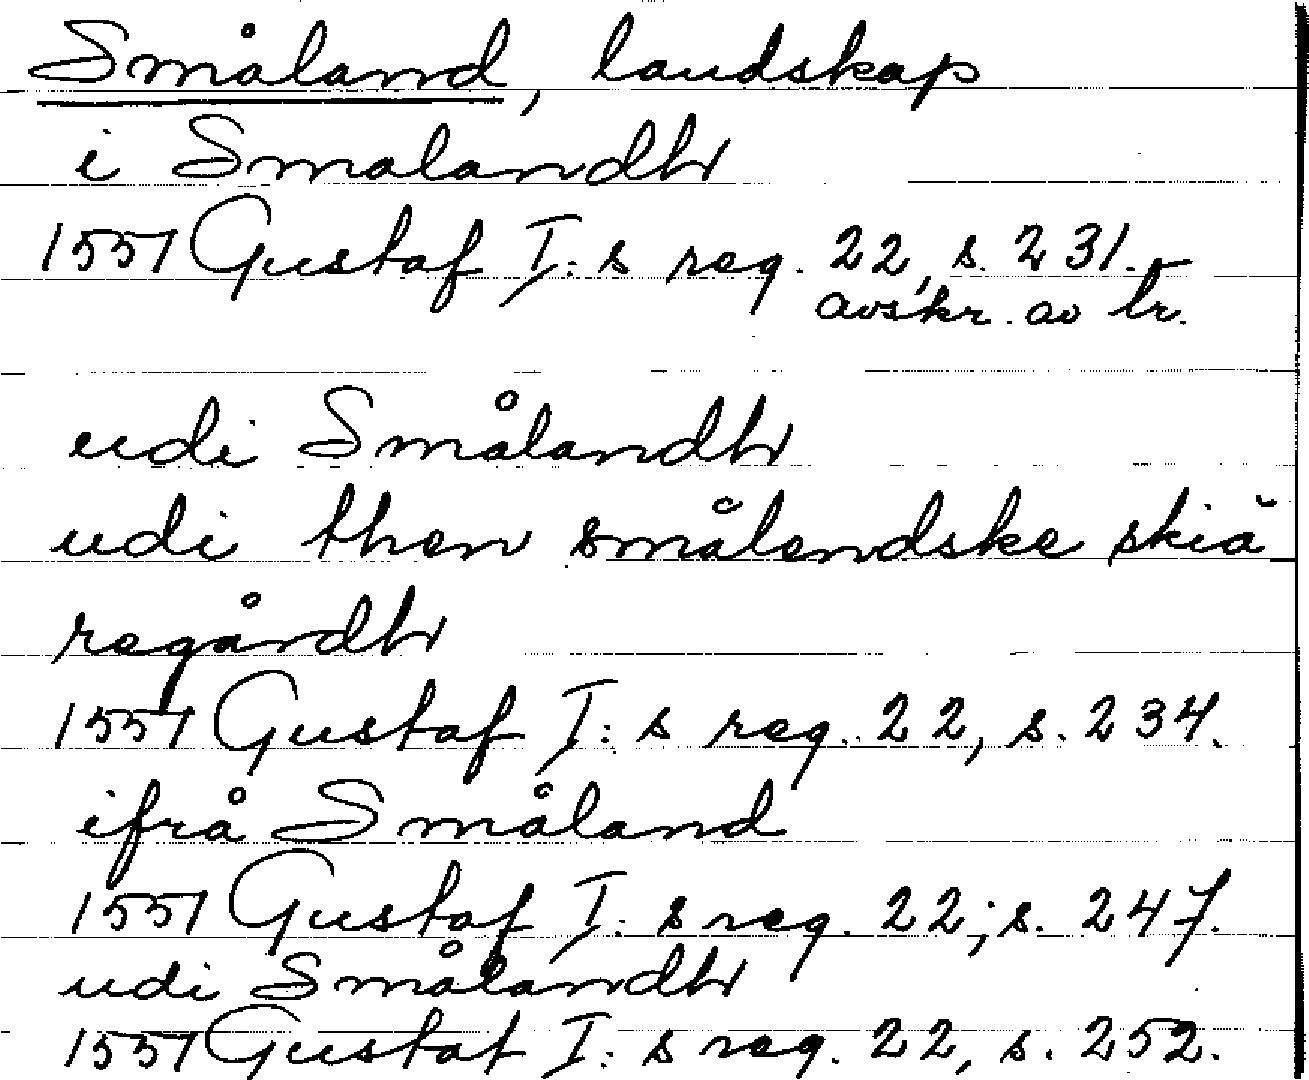 Småland, landskap
i Smalandh
1551 Gustaf I:s reg. 22, s. 231.
avskr. av br.
udi Smålandh
udi then smålendske skiä
regårdh
1551 Gustaf I:s reg. 22, s. 234.
ifrå Småland
1551 Gustaf I:s reg. 22, s. 247.
udi Smålandh
1551 Gustaf I:s reg. 22, s. 252.